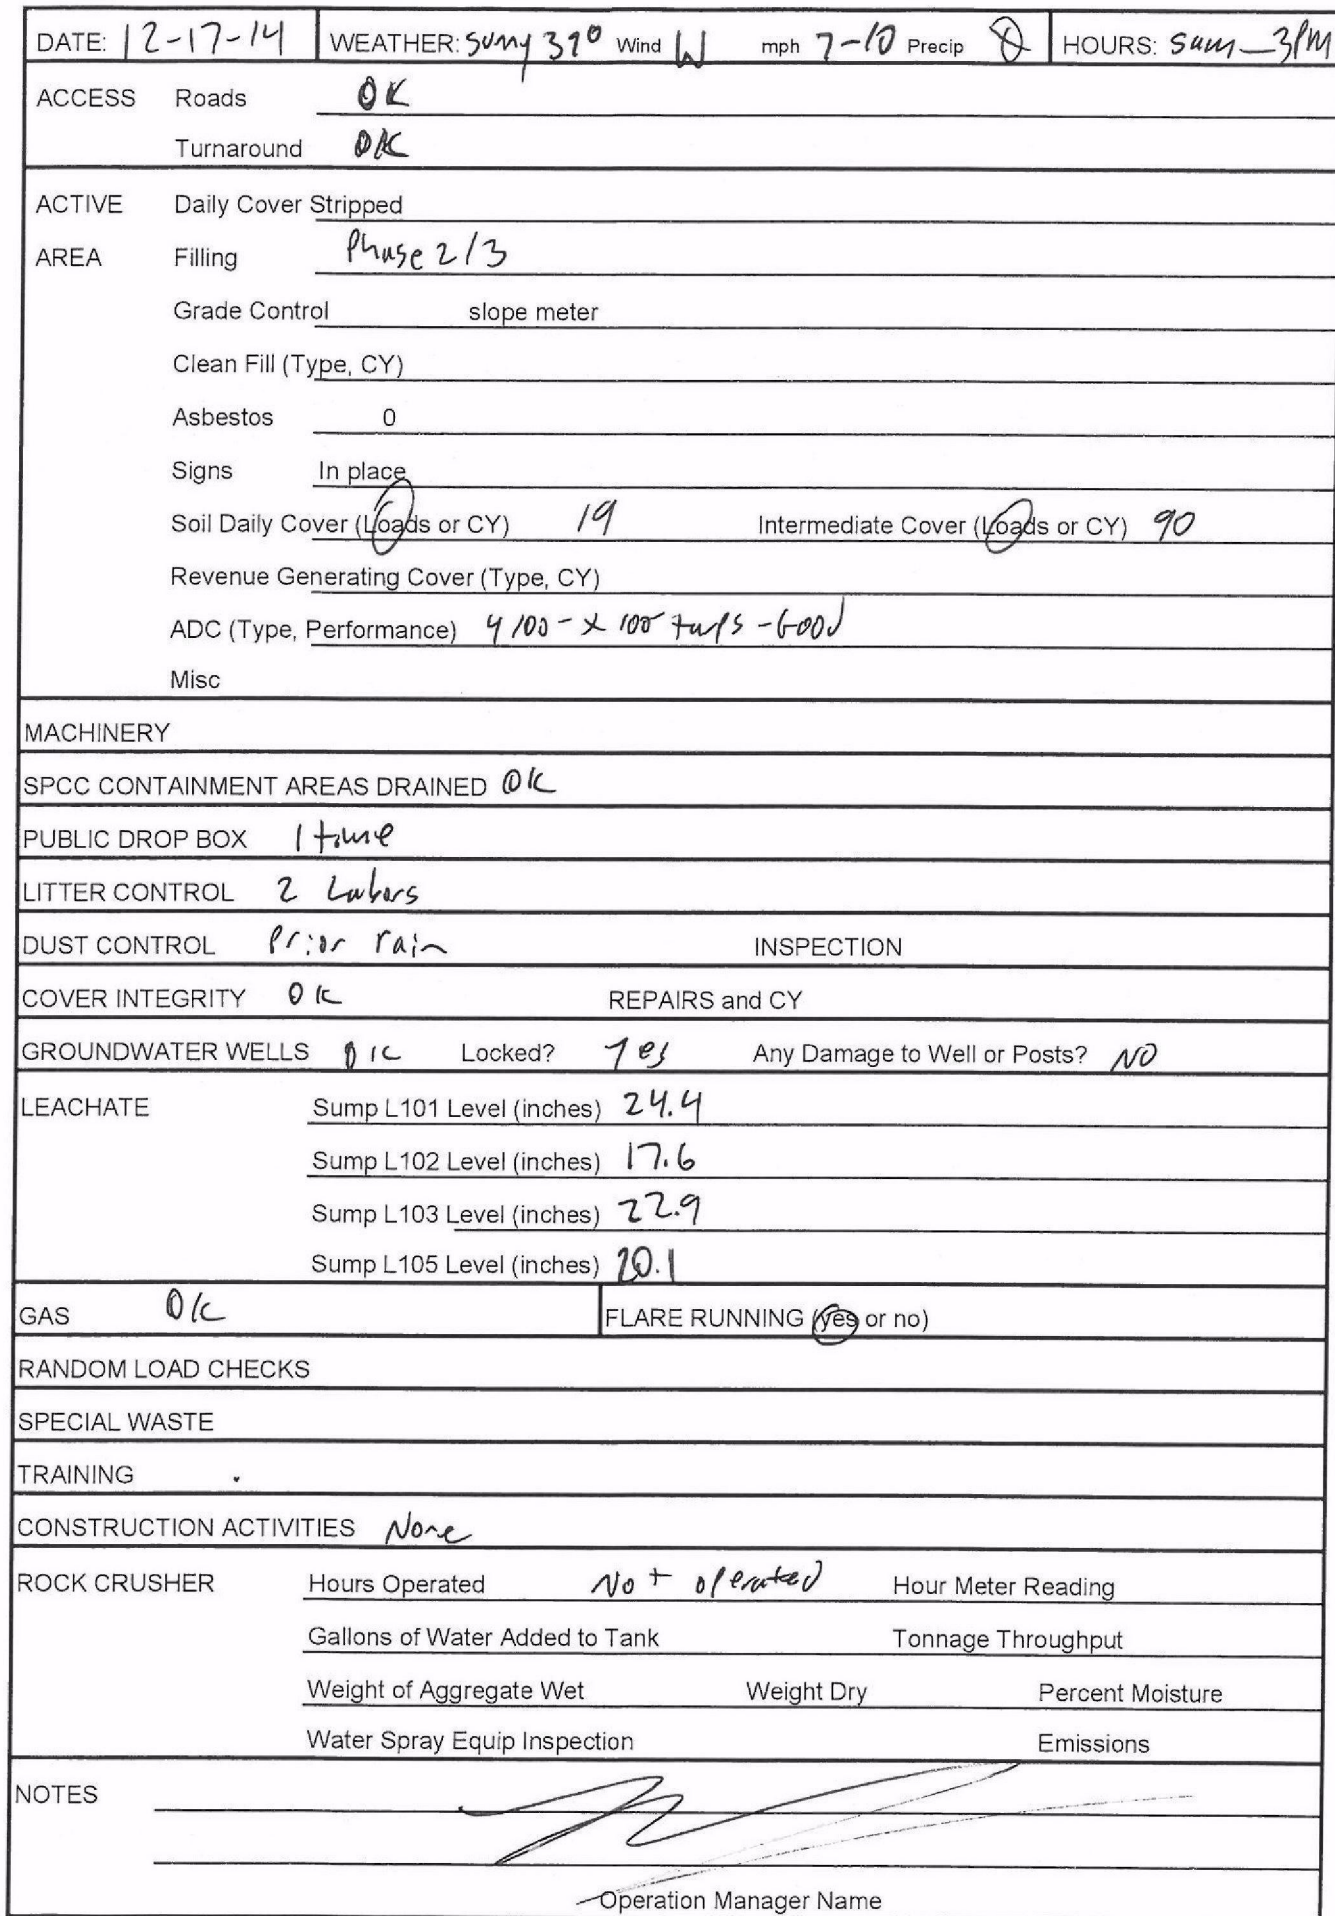 DATE: 12-17-14 WEATHER: Sunny 39° Wind W mph 7-10 Precip 0 HOURS: 5am-3PM
ACCESS Roads OK
Turnaround OK
ACTIVE Daily Cover Stripped
AREA Filling Phase 2/3
Grade Control slope meter
Clean Fill (Type, CY)
Asbestos 0
Signs In place
Soil Daily Cover (Loads or CY) 19 Intermediate Cover (Loads or CY) 90
Revenue Generating Cover (Type, CY)
ADC (Type, Performance) 4 100 - x 100 tarps - Good
Misc
MACHINERY
SPCC CONTAINMENT AREAS DRAINED OK
PUBLIC DROP BOX 1 time
LITTER CONTROL 2 Labors
DUST CONTROL Prior rain INSPECTION
COVER INTEGRITY OK REPAIRS and CY
GROUNDWATER WELLS OK Locked? Yes Any Damage to Well or Posts? NO
LEACHATE Sump L101 Level (inches) 24.4
Sump L102 Level (inches) 17.6
Sump L103 Level (inches) 22.9
Sump L105 Level (inches) 20.1
GAS OK FLARE RUNNING (yes or no)
RANDOM LOAD CHECKS
SPECIAL WASTE
TRAINING
CONSTRUCTION ACTIVITIES None
ROCK CRUSHER Hours Operated Not operated Hour Meter Reading
Gallons of Water Added to Tank Tonnage Throughput
Weight of Aggregate Wet Weight Dry Percent Moisture
Water Spray Equip Inspection Emissions
NOTES
Operation Manager Name